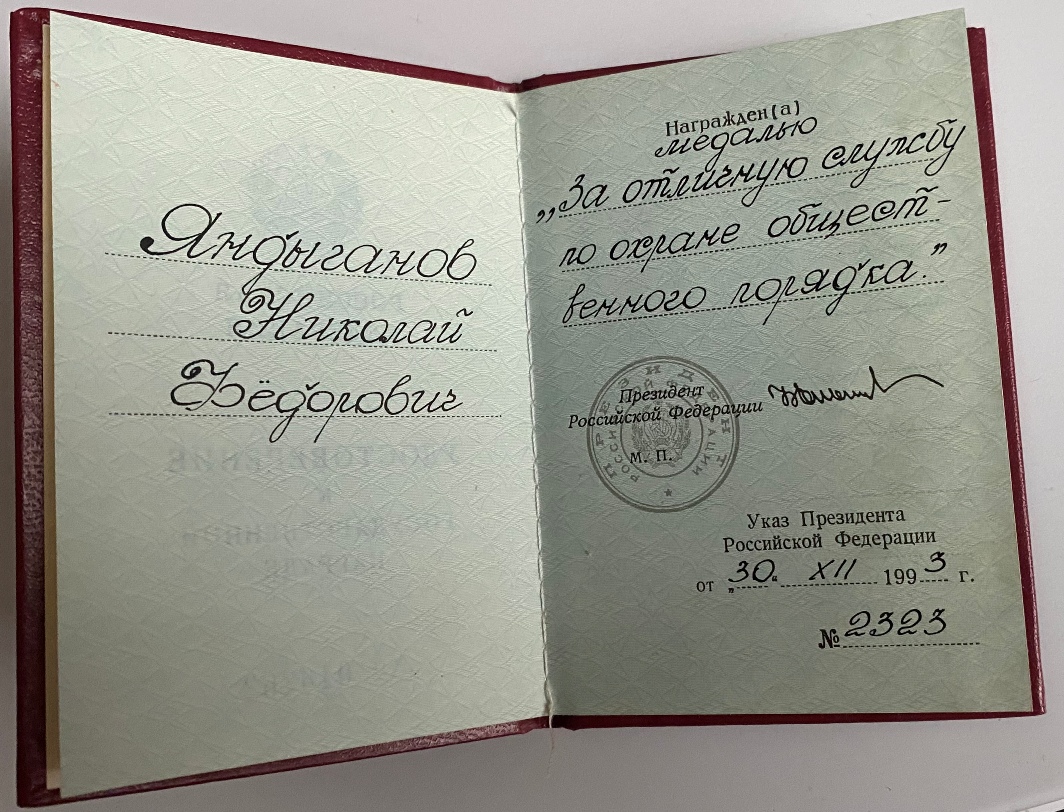 Яндыганов
Николай
Фёдорович
Награжден(а)
медалью
„За отличную службу
по охране общест-
венного порядка.”
ПРЕЗИДЕНТ
РОССИЙСКОЙ ФЕДЕРАЦИИ
Президент
Российской Федерации
М. П.
Указ Президента
Российской Федерации
от „30“ XII 1993 г.
№ 2323